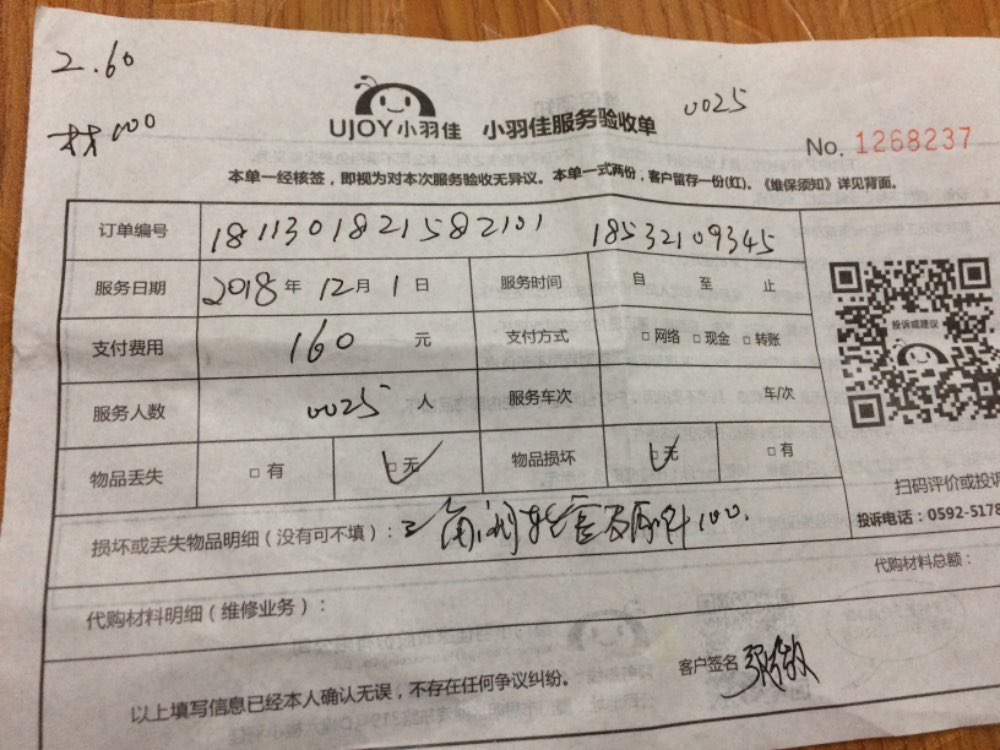 2.60
材100
UJOY小羽佳 小羽佳服务验收单 0025
No. 1268237
本单一经核签，即视为对本次服务验收无异议。本单一式两份，客户留存一份(红)。《维保须知》详见背面。
订单编号 1811301821582101 18532109345
服务日期 2018年 12月 1日 服务时间 自 至 止
支付费用 160 元 支付方式 □网络 □现金 □转账
服务人数 0025 人 服务车次 车/次
物品丢失 □有 □无 物品损坏 □无 □有
投诉或建议
扫码评价或投诉
投诉电话：0592-5178
损坏或丢失物品明细（没有可不填）： 三角阀 及原料100.
代购材料总额：
代购材料明细（维修业务）：
客户签名
以上填写信息已经本人确认无误，不存在任何争议纠纷。